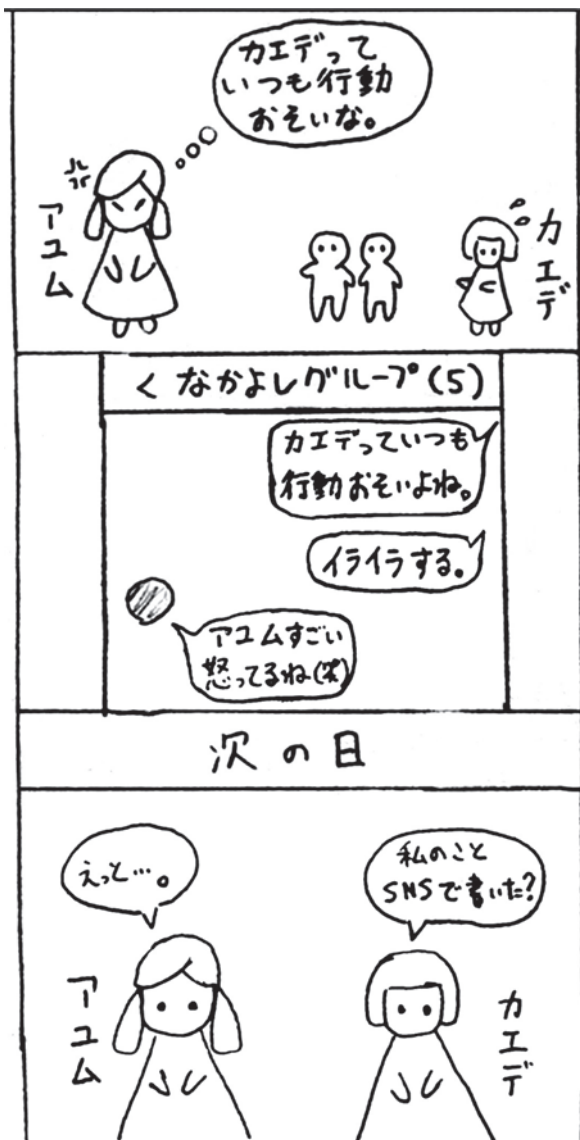 カエデって
いつも行動
おそいな。
アユム
カエデ
< なかよしグループ(5)
カエデっていつも
行動おそいよね。
イライラする。
アユムすごい
怒ってるね(笑)
次の日
えっと…。
私のこと
SNSで書いた?
アユム
カエデ